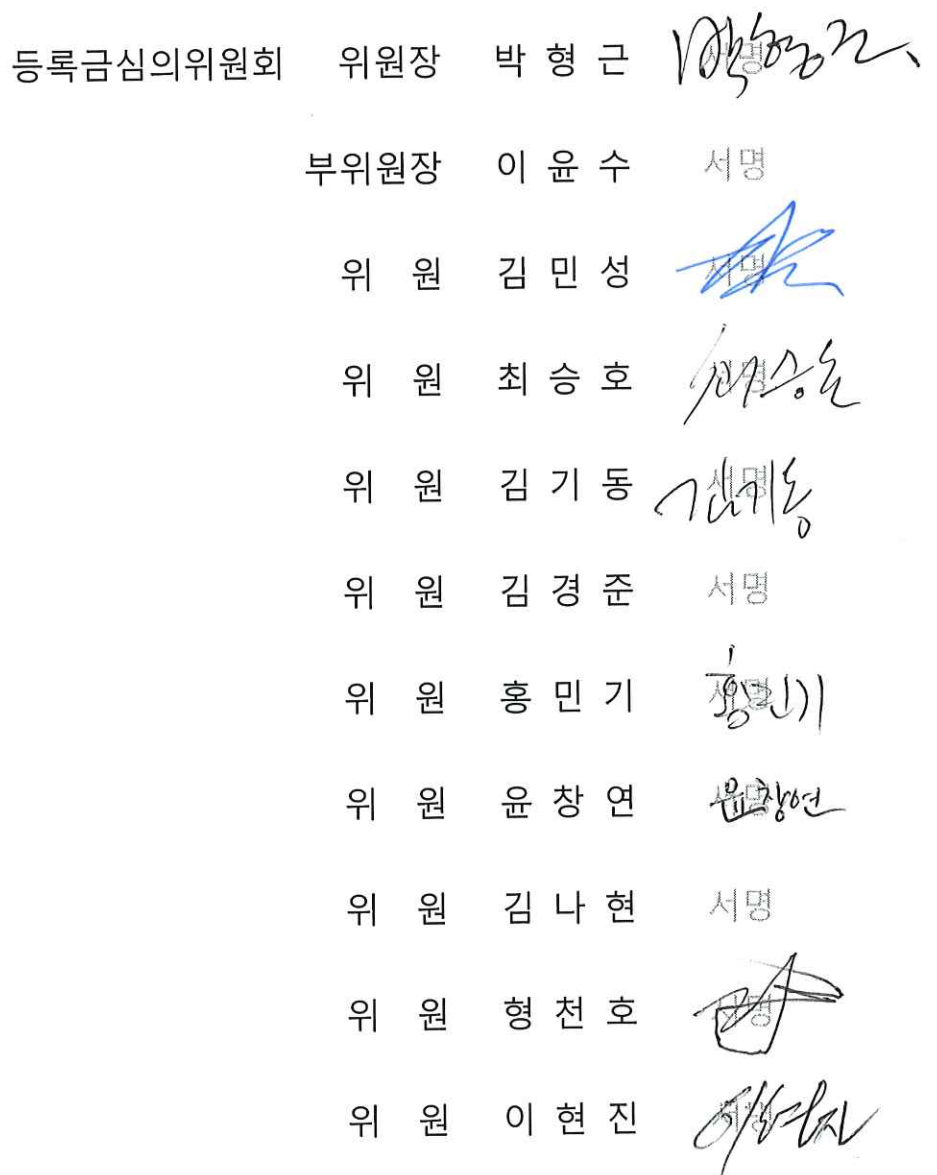 등록금심의위원회 위원장 박 형 근 서명 박형근
부위원장 이 윤 수 서명
위 원 김 민 성 서명
위 원 최 승 호 서명 최승호
위 원 김 기 동 서명 김기동
위 원 김 경 준 서명
위 원 홍 민 기 서명 홍민기
위 원 윤 창 연 서명 윤창연
위 원 김 나 현 서명
위 원 형 천 호 서명
위 원 이 현 진 서명 이현진